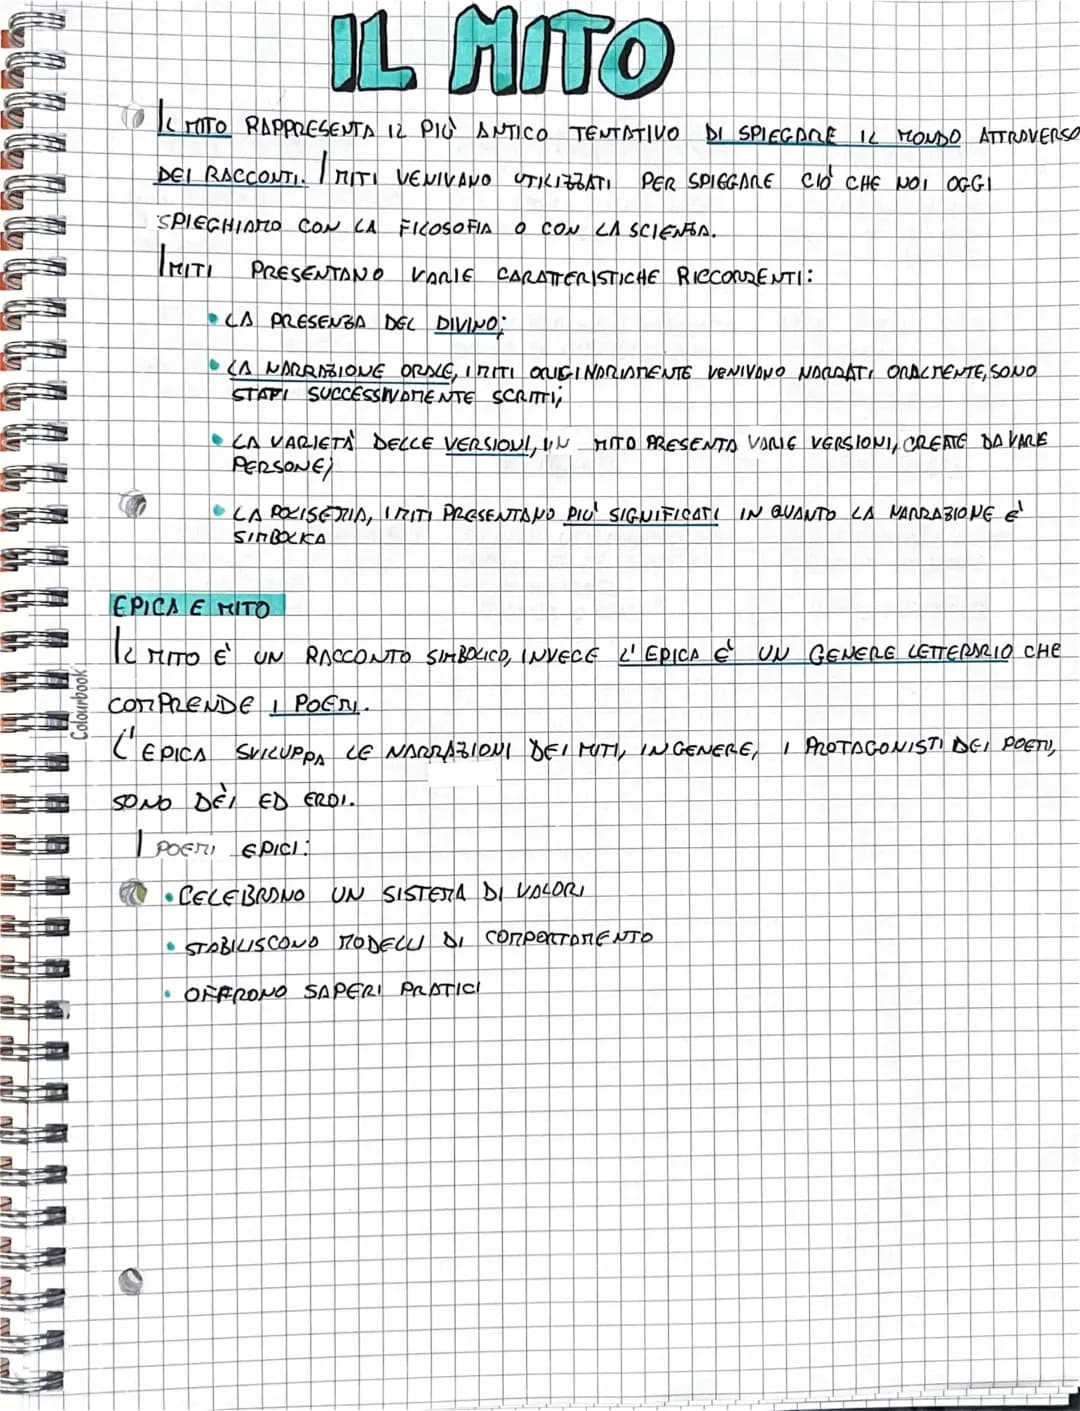 IL MITO
IL MITO RAPPRESENTA IL PIÙ ANTICO TENTATIVO DI SPIEGARE IL MONDO ATTRAVERSO
DEI RACCONTI. I MITI VENIVANO UTILIZZATI PER SPIEGARE CIÒ CHE NOI OGGI
SPIEGHIAMO CON LA FILOSOFIA O CON LA SCIENZA.
I MITI PRESENTANO VARIE CARATTERISTICHE RICCORRENTI:
• LA PRESENZA DEL DIVINO;
• LA NARRAZIONE ORALE, I MITI ORIGINARIAMENTE VENIVANO NARRATI ORALMENTE, SONO
STATI SUCCESSIVAMENTE SCRITTI;
• LA VARIETÀ DELLE VERSIONI, UN MITO PRESENTA VARIE VERSIONI, CREATE DA VARIE
PERSONE;
• LA POLISEMIA, I MITI PRESENTANO PIÙ SIGNIFICATI IN QUANTO LA NARRAZIONE È
SIMBOLICA
EPICA E MITO
IL MITO È UN RACCONTO SIMBOLICO, INVECE L'EPICA È UN GENERE LETTERARIO CHE
COMPRENDE I POEMI.
L'EPICA SVILUPPA LE NARRAZIONI DEI MITI, IN GENERE, I PROTAGONISTI DEI POEMI,
SONO DÈI ED EROI.
I POEMI EPICI:
• CELEBRANO UN SISTEMA DI VALORI
• STABILISCONO MODELLI DI COMPORTAMENTO
• OFFRONO SAPERI PRATICI
Colourbook